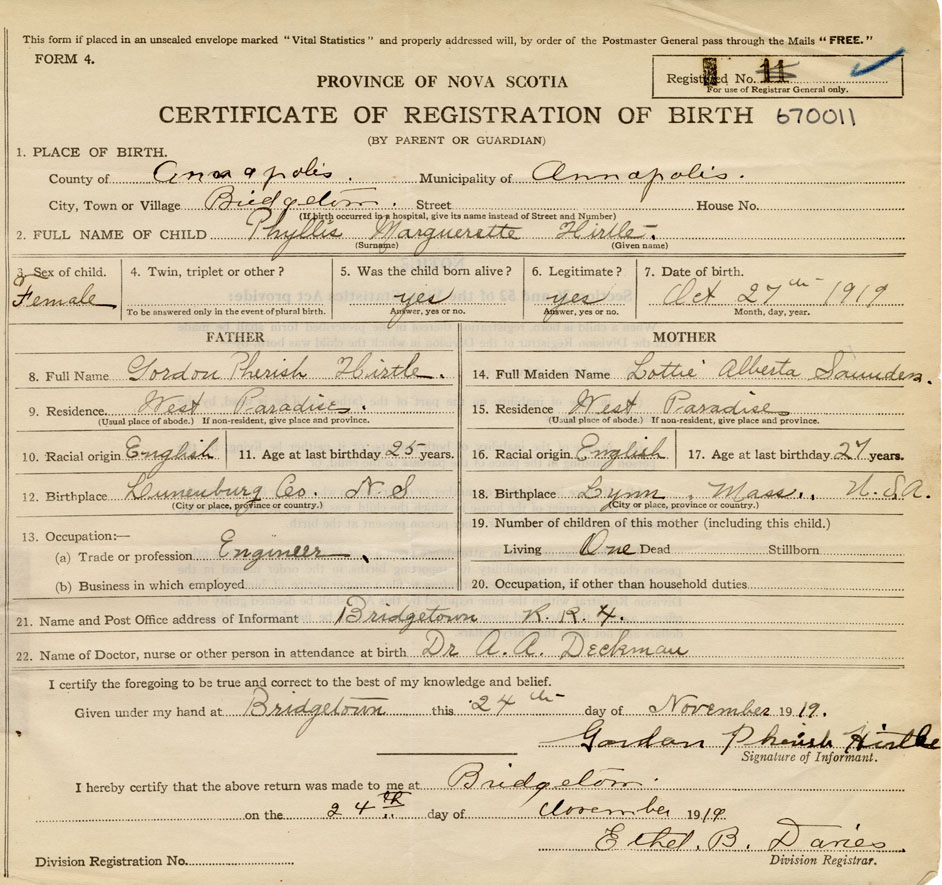 This form if placed in an unsealed envelope marked "Vital Statistics" and properly addressed will, by order of the Postmaster General pass through the Mails "FREE."
FORM 4.
Registered No. 11
For use of Registrar General only.
PROVINCE OF NOVA SCOTIA
CERTIFICATE OF REGISTRATION OF BIRTH 670011
(BY PARENT OR GUARDIAN)
1. PLACE OF BIRTH.
County of Annapolis. Municipality of Annapolis.
City, Town or Village Bridgetown. Street House No.
(If birth occurred in a hospital, give its name instead of Street and Number)
2. FULL NAME OF CHILD Phyllis Marguerette Hirtle.
(Surname) (Given name)
3. Sex of child. 4. Twin, triplet or other? 5. Was the child born alive? 6. Legitimate? 7. Date of birth.
Female yes yes Oct 27th 1919
To be answered only in the event of plural birth. Answer, yes or no. Answer, yes or no. Month, day, year.
FATHER MOTHER
8. Full Name Gordon Pherish Hirtle. 14. Full Maiden Name Lottie Alberta Saunders.
9. Residence West Paradise. 15. Residence West Paradise
(Usual place of abode.) If non-resident, give place and province. (Usual place of abode.) If non-resident, give place and province.
10. Racial origin English 11. Age at last birthday 25 years. 16. Racial origin English 17. Age at last birthday 27 years.
12. Birthplace Lunenburg Co. N S 18. Birthplace Lynn, Mass., U.S.A.
(City or place, province or country.) (City or place, province or country.)
13. Occupation:— 19. Number of children of this mother (including this child.)
(a) Trade or profession Engineer Living One Dead Stillborn
(b) Business in which employed 20. Occupation, if other than household duties
21. Name and Post Office address of Informant Bridgetown R. R. 4.
22. Name of Doctor, nurse or other person in attendance at birth Dr A. A. Deckman
I certify the foregoing to be true and correct to the best of my knowledge and belief.
Given under my hand at Bridgetown this 24th day of November 1919.
Gordon Pherish Hirtle
Signature of Informant.
I hereby certify that the above return was made to me at Bridgetown.
on the 24th day of November 1919.
Ethel. B. Davies
Division Registrar.
Division Registration No.